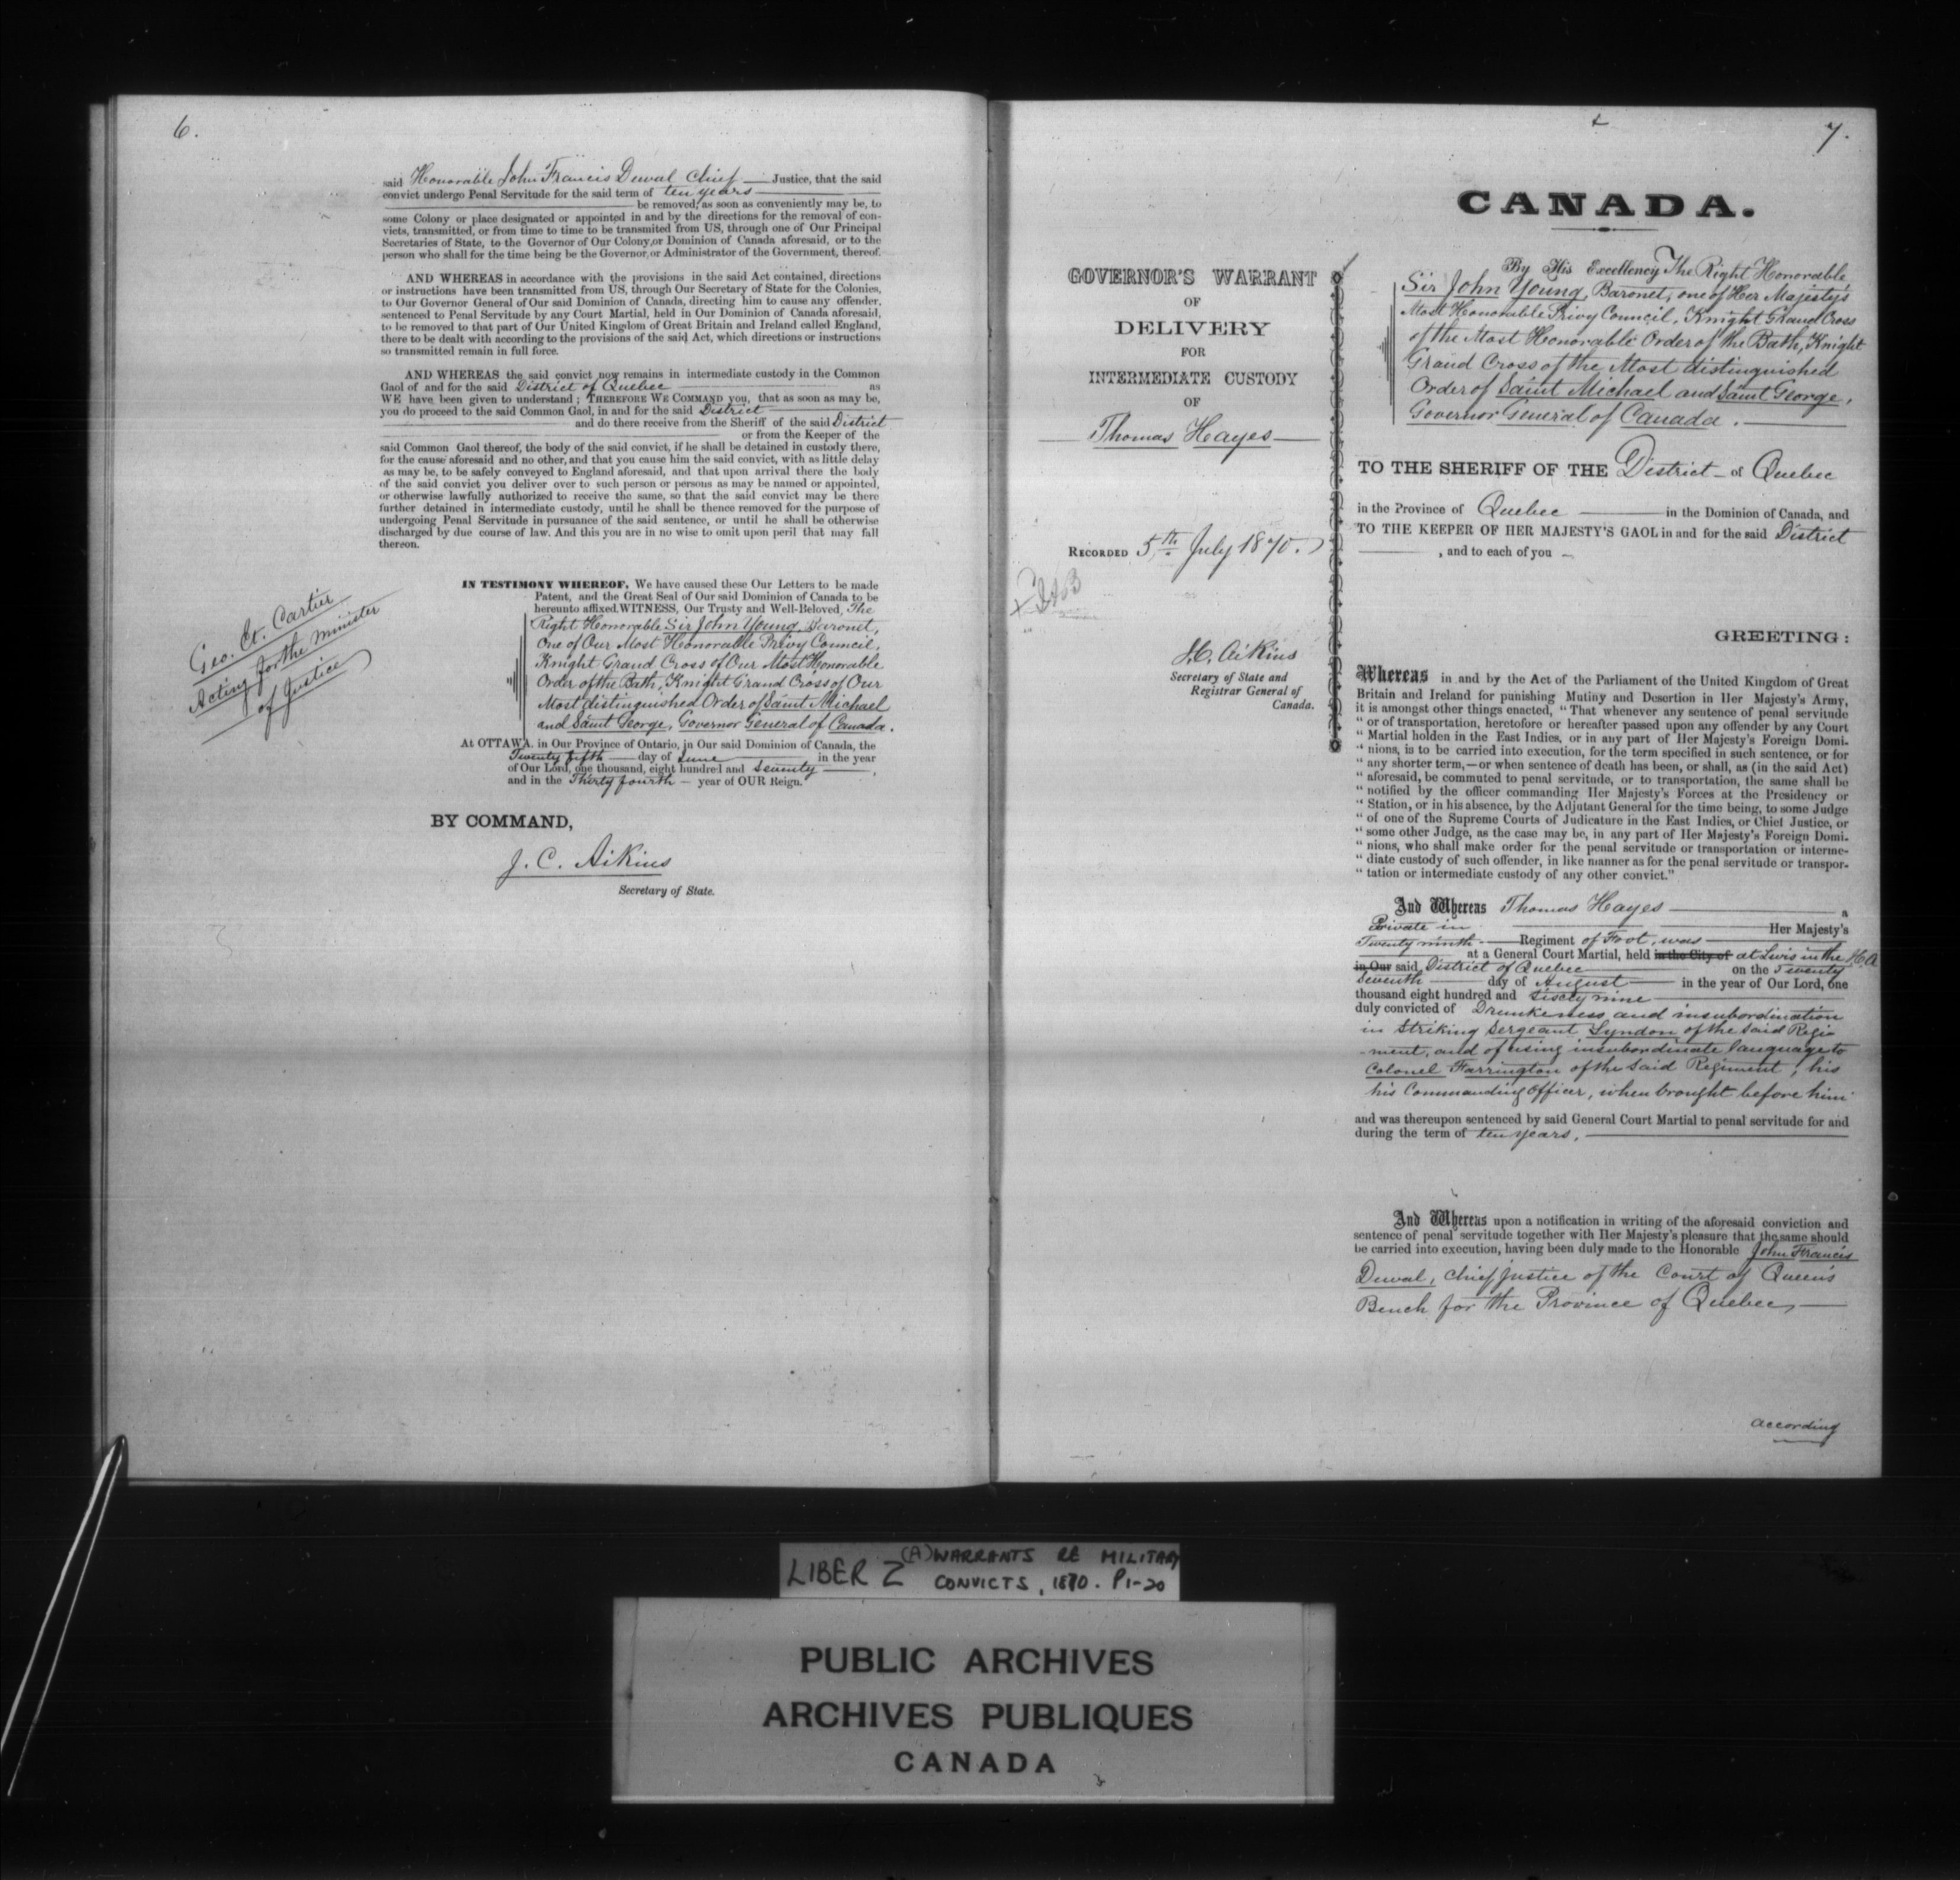 6.
said Honorable John Francis Duval Chief Justice, that the said
convict undergo Penal Servitude for the said term of ten years
be removed, as soon as conveniently may be, to
some Colony or place designated or appointed in and by the directions for the removal of con-
victs, transmitted, or from time to time to be transmited from US, through one of Our Principal
Secretaries of State, to the Governor of Our Colony, or Dominion of Canada aforesaid, or to the
person who shall for the time being be the Governor, or Administrator of the Government, thereof.
AND WHEREAS in accordance with the provisions in the said Act contained, directions
or instructions have been transmitted from US, through Our Secretary of State for the Colonies,
to Our Governor General of Our said Dominion of Canada, directing him to cause any offender,
sentenced to Penal Servitude by any Court Martial, held in Our Dominion of Canada aforesaid,
to be removed to that part of Our United Kingdom of Great Britain and Ireland called England,
there to be dealt with according to the provisions of the said Act, which directions or instructions
so transmitted remain in full force.
AND WHEREAS the said convict now remains in intermediate custody in the Common
Gaol of and for the said District of Quebec as
WE have been given to understand ; THEREFORE WE COMMAND you, that as soon as may be,
you do proceed to the said Common Gaol, in and for the said District
and do there receive from the Sheriff of the said District
or from the Keeper of the
said Common Gaol thereof, the body of the said convict, if he shall be detained in custody there,
for the cause aforesaid and no other, and that you cause him the said convict, with as little delay
as may be, to be safely conveyed to England aforesaid, and that upon arrival there the body
of the said convict you deliver over to such person or persons as may be named or appointed,
or otherwise lawfully authorized to receive the same, so that the said convict may be there
further detained in intermediate custody, until he shall be thence removed for the purpose of
undergoing Penal Servitude in pursuance of the said sentence, or until he shall be otherwise
discharged by due course of law. And this you are in no wise to omit upon peril that may fall
thereon.
Geo. Et. Cartier
Acting for the Minister
of Justice
IN TESTIMONY WHEREOF, We have caused these Our Letters to be made
Patent, and the Great Seal of Our said Dominion of Canada to be
hereunto affixed. WITNESS, Our Trusty and Well-Beloved, The
Right Honorable Sir John Young, Baronet,
One of Our Most Honorable Privy Council,
Knight Grand Cross of Our Most Honorable
Order of the Bath, Knight Grand Cross of Our
Most distinguished Order of Saint Michael
and Saint George, Governor General of Canada.
At OTTAWA. in Our Province of Ontario, in Our said Dominion of Canada, the
Twenty fifth day of June in the year
of Our Lord, one thousand, eight hundred and Seventy,
and in the Thirty fourth year of OUR Reign.
BY COMMAND,
J. C. Aikins
Secretary of State.
7.
CANADA.
GOVERNOR'S WARRANT
OF
DELIVERY
FOR
INTERMEDIATE CUSTODY
OF
Thomas Hayes
RECORDED 5th July 1870.
J.C. Aikins
Secretary of State and
Registrar General of
Canada.
By His Excellency The Right Honorable
Sir John Young, Baronet, one of Her Majesty's
Most Honorable Privy Council, Knight Grand Cross
of the Most Honorable Order of the Bath, Knight
Grand Cross of the Most distinguished
Order of Saint Michael and Saint George,
Governor General of Canada.
TO THE SHERIFF OF THE District of Quebec
in the Province of Quebec in the Dominion of Canada, and
TO THE KEEPER OF HER MAJESTY'S GAOL in and for the said District
, and to each of you
GREETING :
Whereas in and by the Act of the Parliament of the United Kingdom of Great
Britain and Ireland for punishing Mutiny and Desertion in Her Majesty's Army,
it is amongst other things enacted, " That whenever any sentence of penal servitude
" or of transportation, heretofore or hereafter passed upon any offender by any Court
" Martial holden in the East Indies, or in any part of Her Majesty's Foreign Domi-
" nions, is to be carried into execution, for the term specified in such sentence, or for
" any shorter term,—or when sentence of death has been, or shall, as (in the said Act)
" aforesaid, be commuted to penal servitude, or to transportation, the same shall be
" notified by the officer commanding Her Majesty's Forces at the Presidency or
" Station, or in his absence, by the Adjutant General for the time being, to some Judge
" of one of the Supreme Courts of Judicature in the East Indies, or Chief Justice, or
" some other Judge, as the case may be, in any part of Her Majesty's Foreign Domi-
" nions, who shall make order for the penal servitude or transportation or interme-
" diate custody of such offender, in like manner as for the penal servitude or transpor-
" tation or intermediate custody of any other convict."
And Whereas Thomas Hayes a
Private in Her Majesty's
Twenty ninth Regiment of Foot, was
at a General Court Martial, held in the City of at Levis in the
in Our said District of Quebec on the Twenty
Seventh day of August in the year of Our Lord, one
thousand eight hundred and sixty nine
duly convicted of Drunkeness and insubordination
in Striking Sergeant Lyndon of the said Regi
-ment, and of using insubordinate language to
Colonel Farrington of the said Regiment, his
his Commanding Officer, when brought before him
and was thereupon sentenced by said General Court Martial to penal servitude for and
during the term of ten years,
And Whereas upon a notification in writing of the aforesaid conviction and
sentence of penal servitude together with Her Majesty's pleasure that the same should
be carried into execution, having been duly made to the Honorable John Francis
Duval, Chief Justice of the Court of Queen's
Bench for the Province of Quebec,
according
LIBER Z (A) WARRANTS RE MILITARY
CONVICTS, 1870. P1-20
PUBLIC ARCHIVES
ARCHIVES PUBLIQUES
CANADA